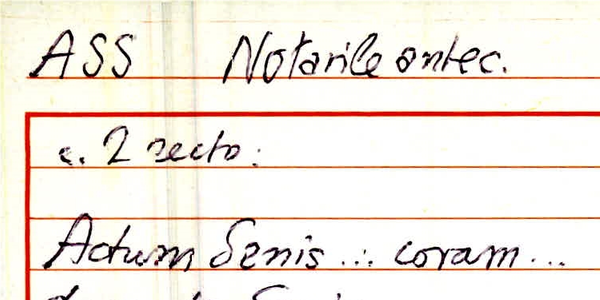 ASS Notarile antec.
c. 2 recto:
Actum Senis ... coram...